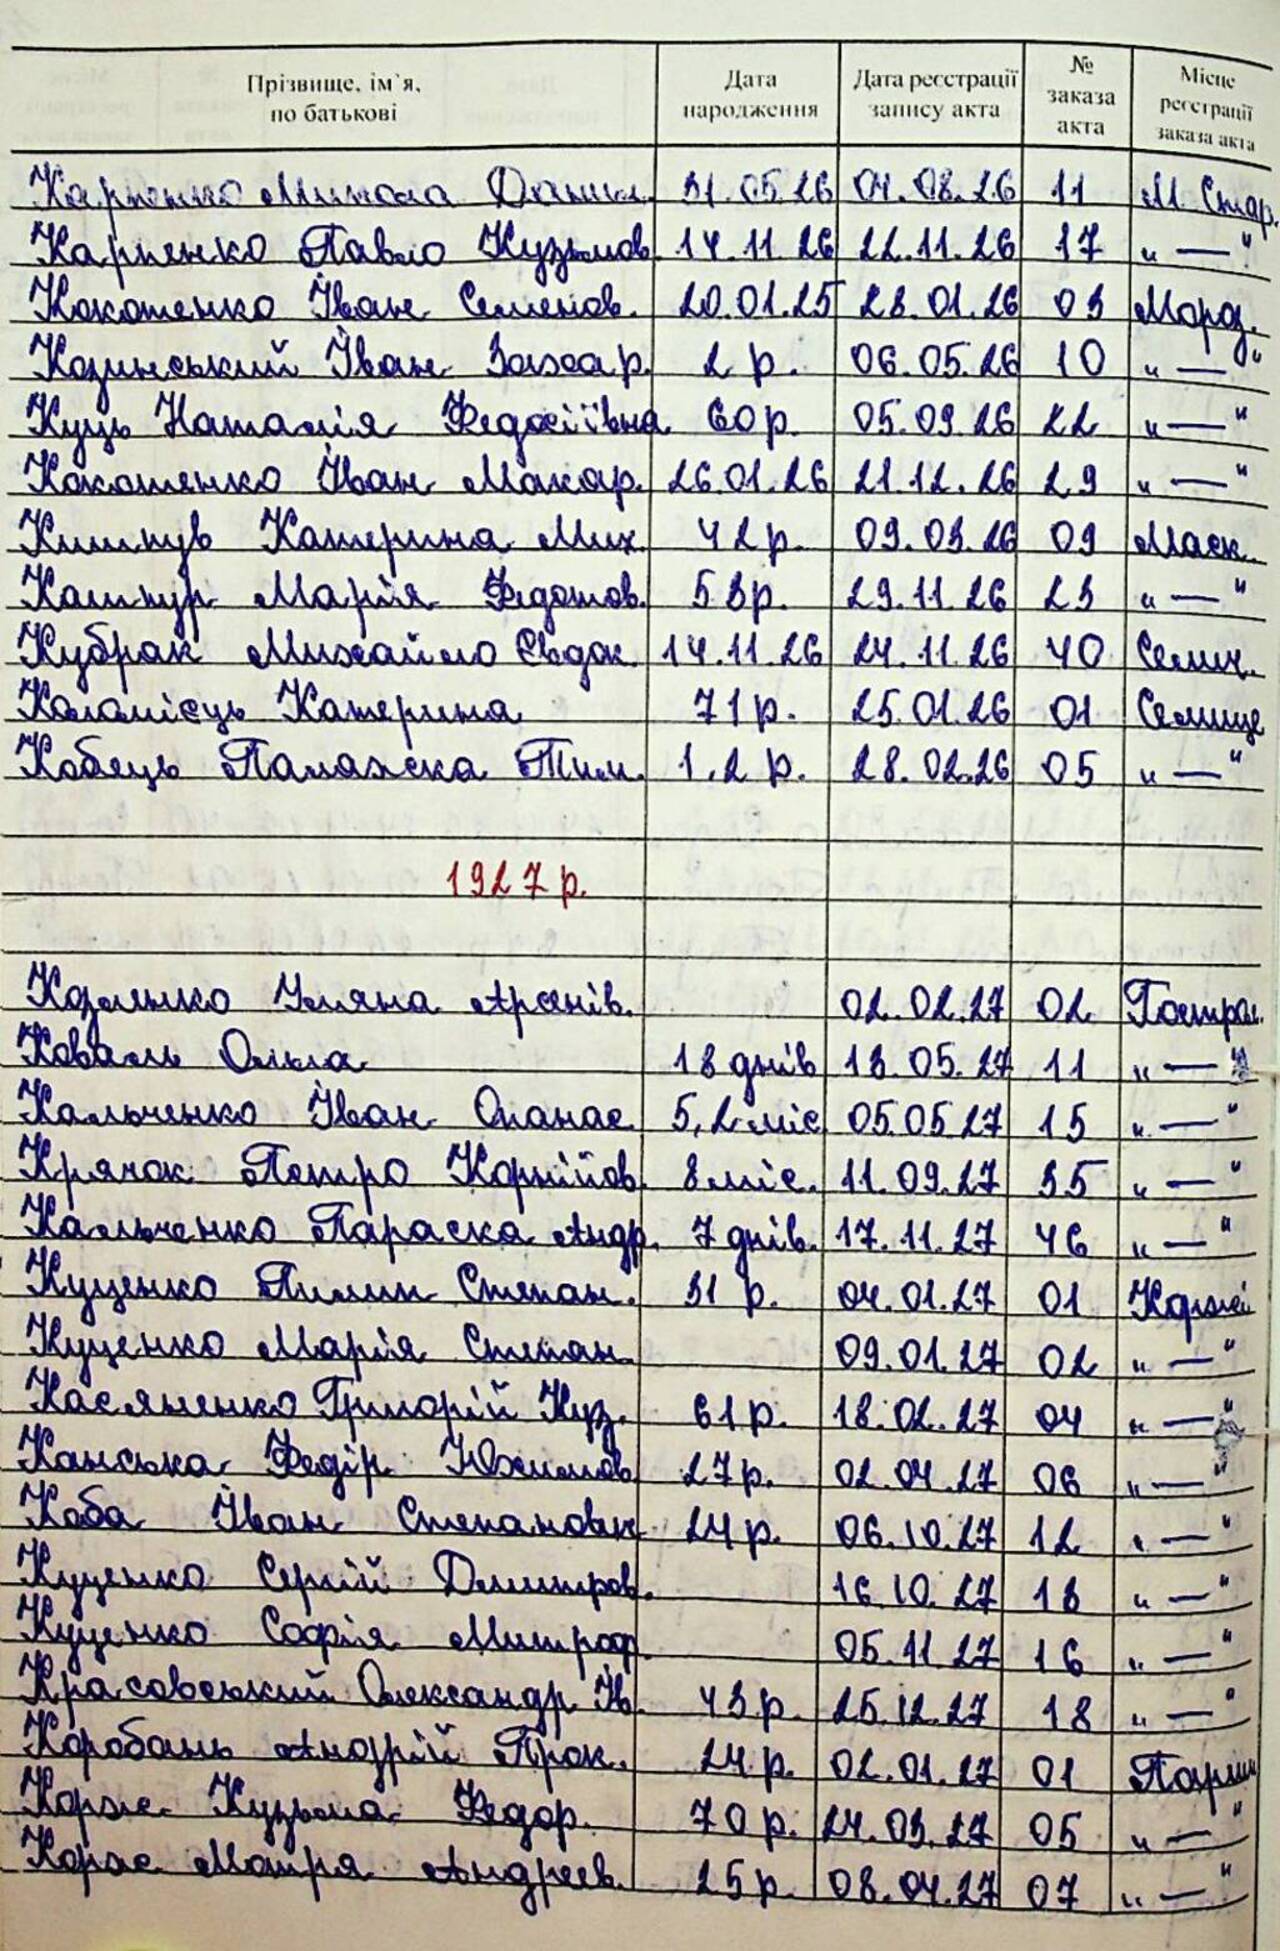 Прізвище, ім`я, по батькові Дата народження Дата реєстрації запису акта № заказа акта Місце реєстрації заказа акта
Карпенко Микола Данил. 31.05.26 04.08.26 11 М Стар.
Карпенко Павло Кузьмов. 14.11.26 22.11.26 17 "—"
Кокотенко Іван Семенов. 20.01.25 28.01.26 03 Мард.
Козинський Іван Захар. 2 р. 06.05.26 10 "—"
Куць Наталія Федосіївна 60 р. 05.09.26 22 "—"
Кокотенко Іван Макар. 26.01.26 21.12.26 29 "—"
Катерина Мих. 42 р. 09.03.26 09 Маск.
Каштур Марія Федотов. 53 р. 29.11.26 23 "—"
Кубрак Михайло Євдок. 14.11.26 24.11.26 40 Селищ.
Коломієць Катерина 71 р. 25.01.26 01 Селище
Кобець Палажка Тим. 1,2 р. 28.02.26 05 "—"
1927 р.
Козленко Уляна Арсенів. 02.02.27 02 Гостра.
Коваль Ольга 18 днів 18.05.27 11 "—"
Кальченко Іван Опанас. 5,2 міс 05.05.27 15 "—"
Крячок Петро Корнійов. 8 міс. 11.09.27 35 "—"
Кальченко Параска Андр. 7 днів. 17.11.27 46 "—"
Куценко Пилип Степан. 31 р. 04.01.27 01 Коржі
Куценко Марія Степан. 09.01.27 02 "—"
Касяненко Григорій Куз. 61 р. 18.02.27 04 "—"
Канська Федір Юхимов. 27 р. 02.04.27 06 "—"
Коба Іван Степанович 24 р. 06.10.27 12 "—"
Куценко Сергій Дмитров. 16.10.27 13 "—"
Куценко Софія Митроф. 05.11.27 16 "—"
Красовський Олександр Ів. 43 р. 25.12.27 18 "—"
Коробань Андрій Прок. 24 р. 02.01.27 01
Корже Кузьма Федор. 70 р. 24.03.27 05 "—"
Корже Мотря Андреев. 25 р. 08.04.27 07 "—"